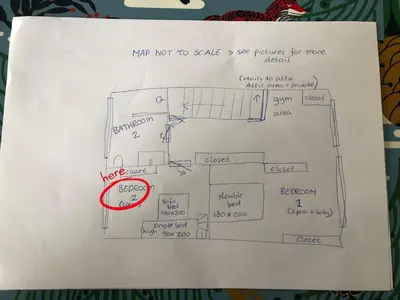 MAP NOT TO SCALE > see pictures for more
detail
(stairs to attic
Attic area = private)
gym
area
closet
BATHROOM
2
closet
closet
closet
here
BEDROOM
2
sofa
bed
140x200
single bed
high 90x200
double
bed
180x200
BEDROOM
1
(2pers + baby)
closet